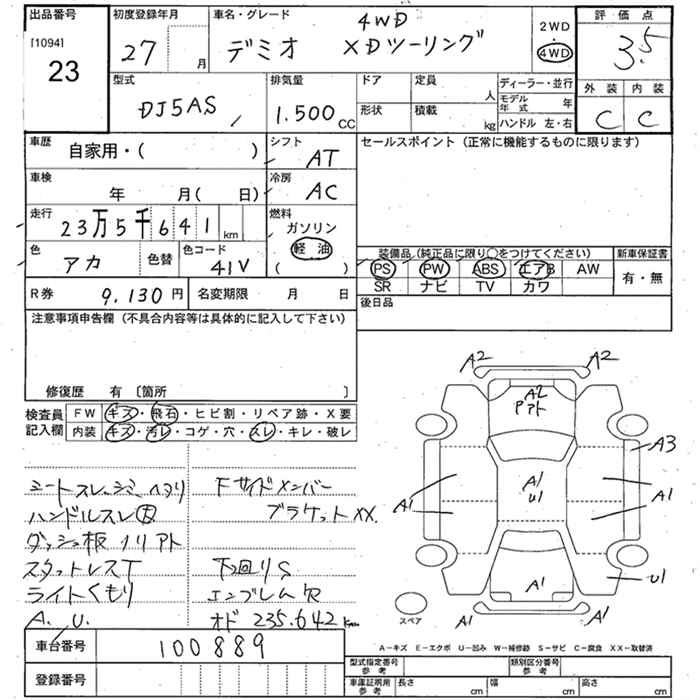 出品番号
[1094]
23
初度登録年月
27 月
車名・グレード
4WD
デミオ XDツーリング
2WD
・
4WD
評価点
3.5
外装 内装
C C
型式
DJ5AS
排気量
1.500 CC
ドア 定員 人
形状 積載 kg
ディーラー・並行
モデル年式 年
ハンドル 左・右
車歴
自家用・( )
シフト
AT
車検
年 月( 日)
冷房
AC
走行
23万5千641 km
燃料
ガソリン
軽油
( )
色
アカ
色替
色コード
41V
セールスポイント (正常に機能するものに限ります)
装備品 (純正品に限り○をつけてください)
PS PW ABS エアB AW
SR ナビ TV カワ
新車保証書
有・無
R券 9.130 円
名変期限 月 日
後日品
注意事項申告欄 (不具合内容等は具体的に記入して下さい)
修復歴 有 〔箇所 〕
検査員記入欄
FW キズ・飛石・ヒビ割・リペア跡・X要
内装 キズ・汚レ・コゲ・穴・スレ・キレ・破レ
シートスレ、シミ、ヘタリ
ハンドルスレ
ダッシュ板ノリアト
スタットレスT
ライトくもり
A. U.
Fサイドメンバー
ブラケットXX.
下回りS
エンブレム欠
オド 235.642 km
A2 A2
A2
アト
A3
A1
A1
A1
U1
A1
U1
A1
A1 A1
スペア
車台番号 100889
登録番号
A-キズ E-エクボ U-凹み W-補修跡 S-サビ C-腐食 XX-取替済
型式指定番号
参考
類別区分番号
参考
車庫証明用
参考
長さ cm 幅 cm 高さ cm